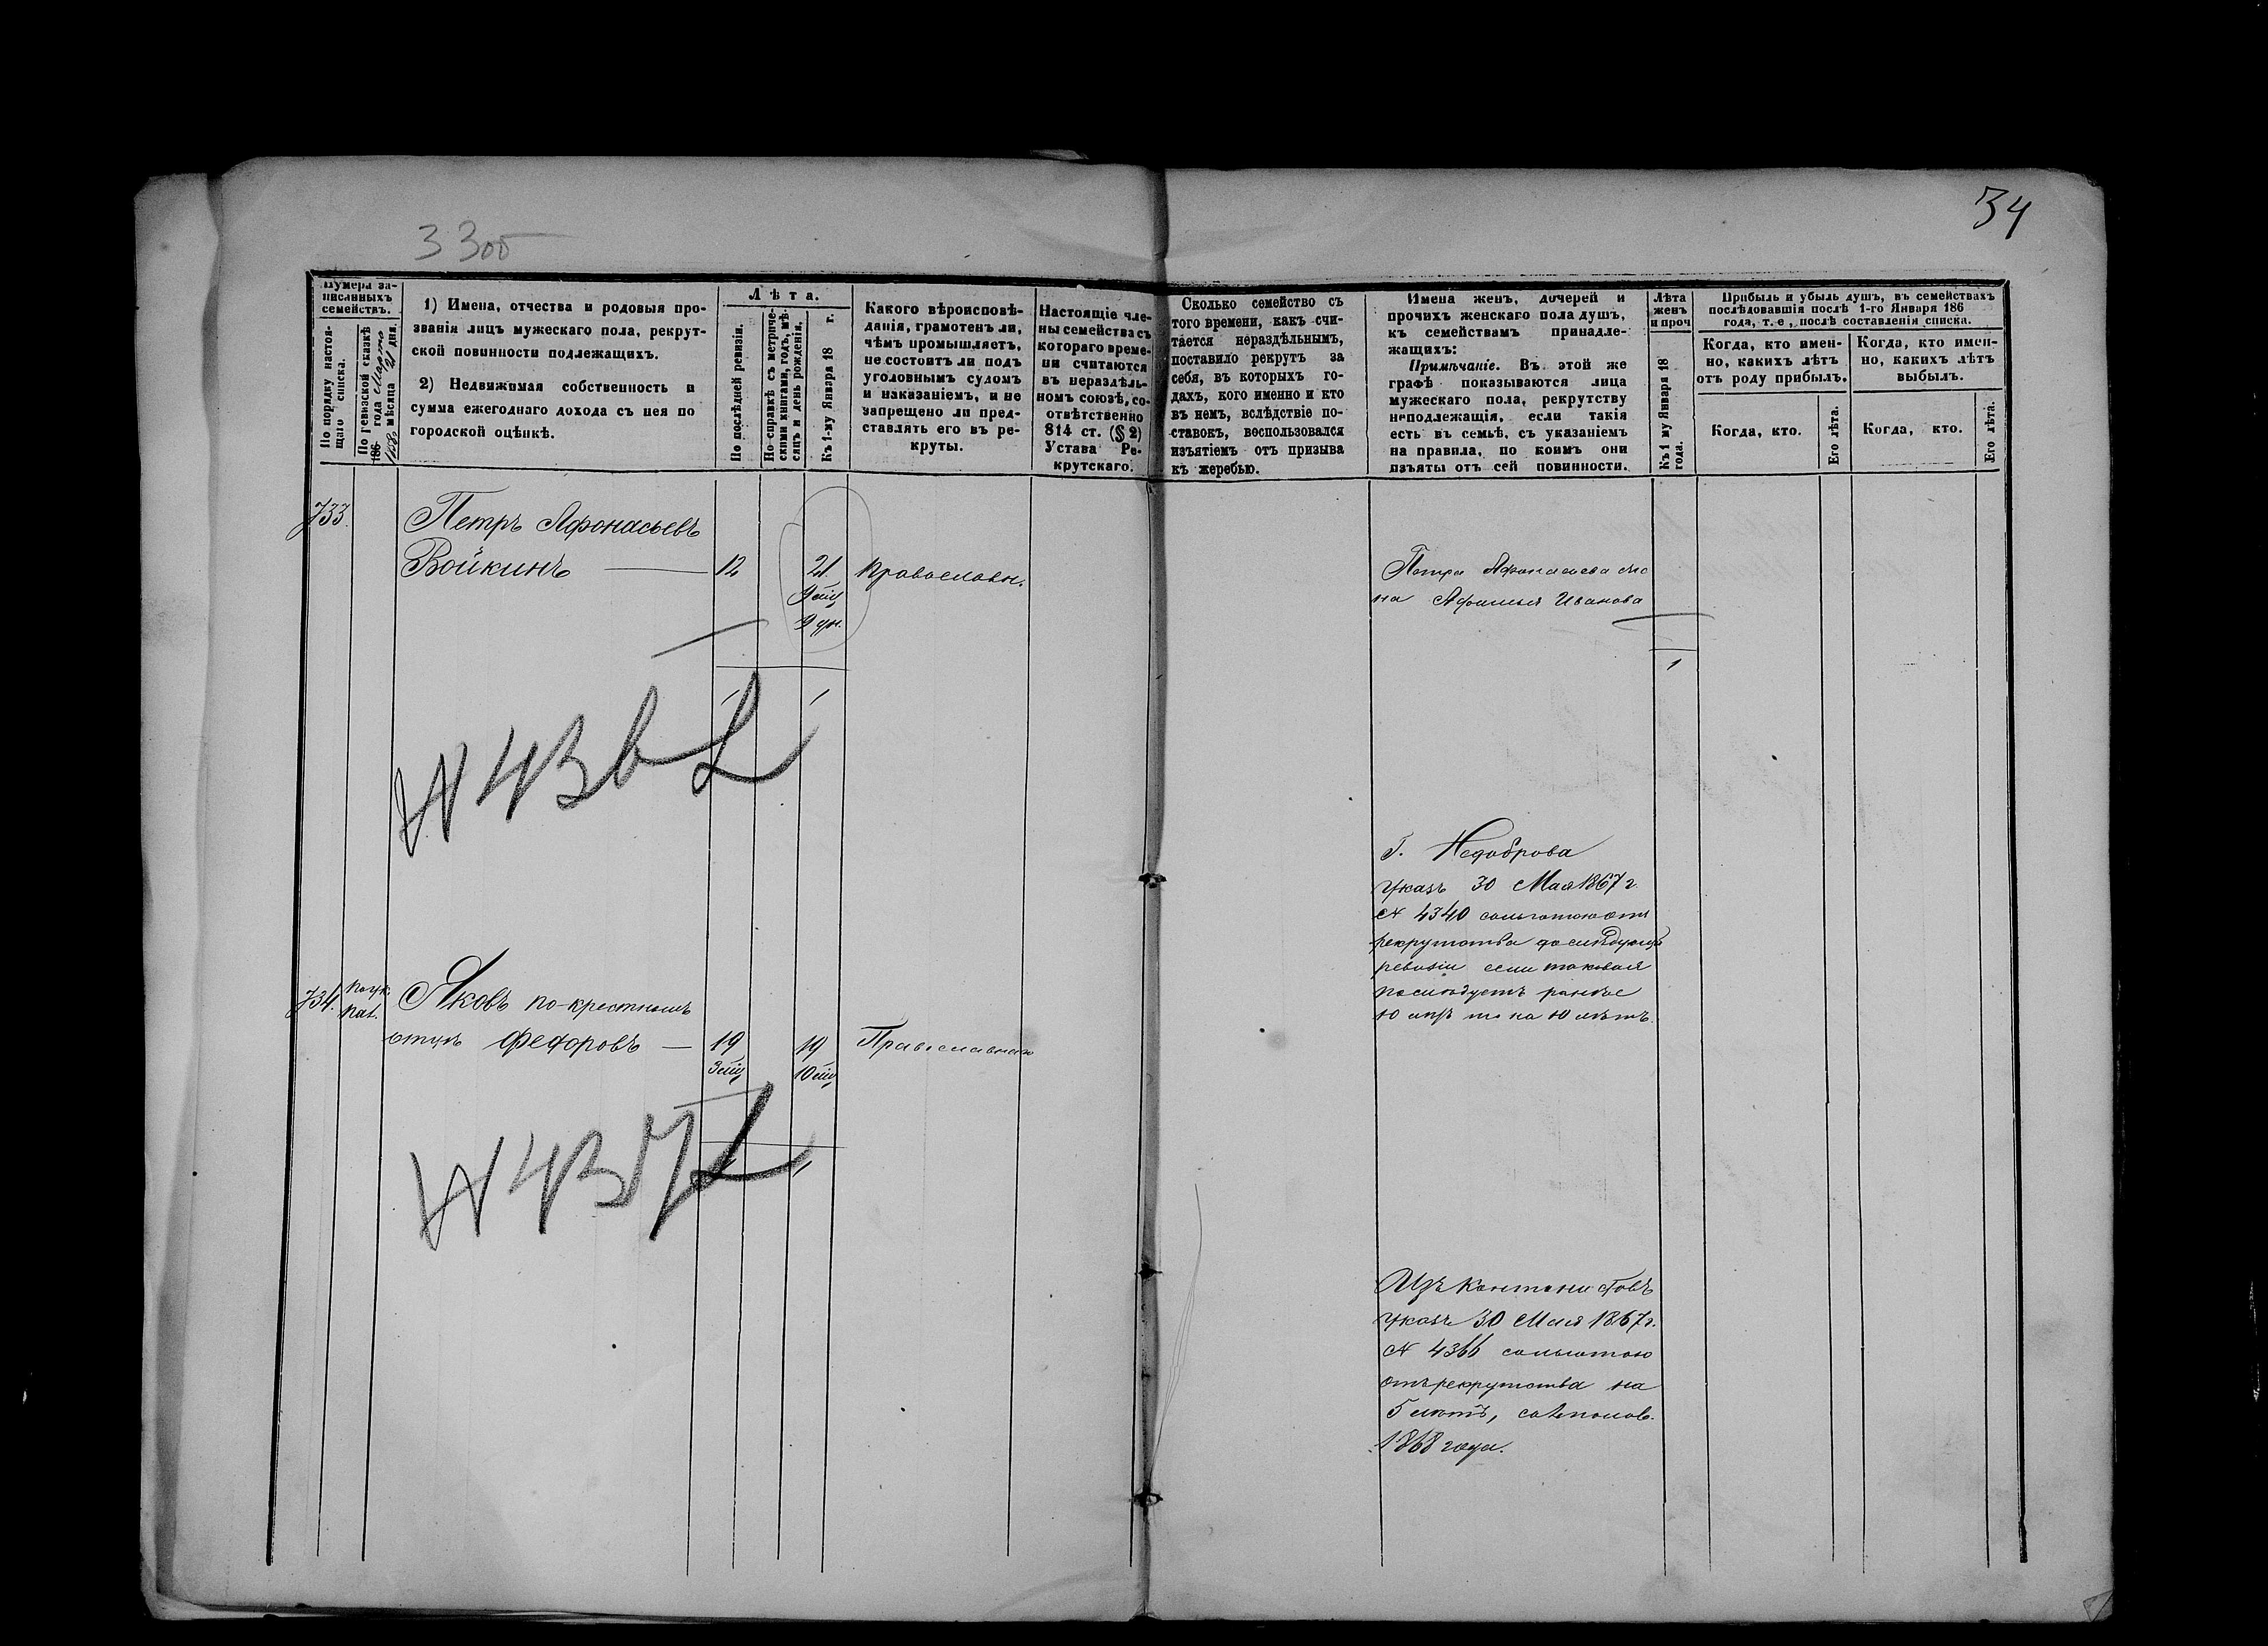 34
3 300
Нумера за-
писанныхъ
семействъ.
По порядку настоя-
щаго списка.
По ревизской сказкѣ
186 года Марта
1858 мѣсяца 21 дня.
1) Имена, отчества и родовыя про-
званія лицъ мужескаго пола, рекрут-
ской повинности подлежащихъ.
2) Недвижимая собственность и
сумма ежегоднаго дохода съ нея по
городской оцѣнкѣ.
Лѣта.
По послѣдней ревизіи.
По справкѣ съ метриче-
скими книгами, годъ, мѣ-
сяцъ и день рожденія.
Къ 1-му Января 18 г.
Какого вѣроисповѣ-
данія, грамотенъ ли,
чѣмъ промышляетъ,
не состоитъ ли подъ
уголовнымъ судомъ
и наказаніемъ, и не
запрещено ли пред-
ставлять его въ ре-
круты.
Настоящіе чле-
ны семейства съ
котораго време-
ни считаются
въ нераздѣль-
номъ союзѣ, со-
отвѣтственно
814 ст. (§ 2)
Устава Ре-
крутскаго.
Сколько семейство съ
того времени, какъ счи-
тается нераздѣльнымъ,
поставило рекрутъ за
себя, въ которыхъ го-
дахъ, кого именно и кто
въ немъ, вслѣдствіе по-
ставокъ, воспользовался
изъятіемъ отъ призыва
къ жеребью.
Имена женъ, дочерей и
прочихъ женскаго пола душъ,
къ семействамъ принадле-
жащихъ:
Примѣчаніе. Въ этой же
графѣ показываются лица
мужескаго пола, рекрутству
неподлежащія, если такія
есть въ семьѣ, съ указаніемъ
на правила, по коимъ они
изъяты отъ сей повинности.
Лѣта
женъ
и проч
Къ 1 му Января 18
года.
Прибыль и убыль душъ, въ семействахъ
послѣдовавшія послѣ 1-го Января 186
года, т. е., послѣ составленія списка.
Когда, кто имен-
но, какихъ лѣтъ
отъ роду прибылъ.
Когда, кто.
Его лѣта.
Когда, кто имен-
но, какихъ лѣтъ
выбылъ.
Когда, кто.
Его лѣта.
733.
Петръ Афонасьевъ
Войкинъ — 12 21 православн.
9 мѣц
9 дн.
1 1
N 436 L
Петра Афонасьева же
на Афимья Иванова
1
Г. Недоброва
Указъ 30 Мая 1867 г.
N 4340 сольготою отъ
рекрутства до слѣдующей
ревизіи если таковая
послѣдуетъ ранѣе
10 лѣтъ то на 10 лѣтъ.
734. Яковъ по-крестному
отцу Федоровъ — 19 19 Православнаго
3 мѣц 10 мѣц
1 1
N 437 L
Изъ Кантонистовъ
Указъ 30 Мая 1867 г.
N 4366 сольготою
отъ рекрутства на
5 лѣтъ, со 2 полов.
1868 года.